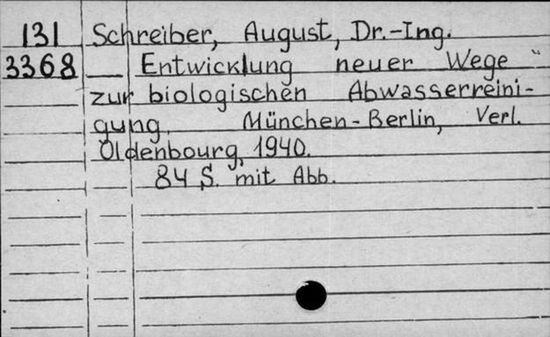 131 Schreiber, August, Dr.-Ing.
3368 Entwicklung neuer Wege "
zur biologischen Abwasserreini-
gung. München-Berlin, Verl.
Oldenbourg, 1940.
84 S. mit Abb.